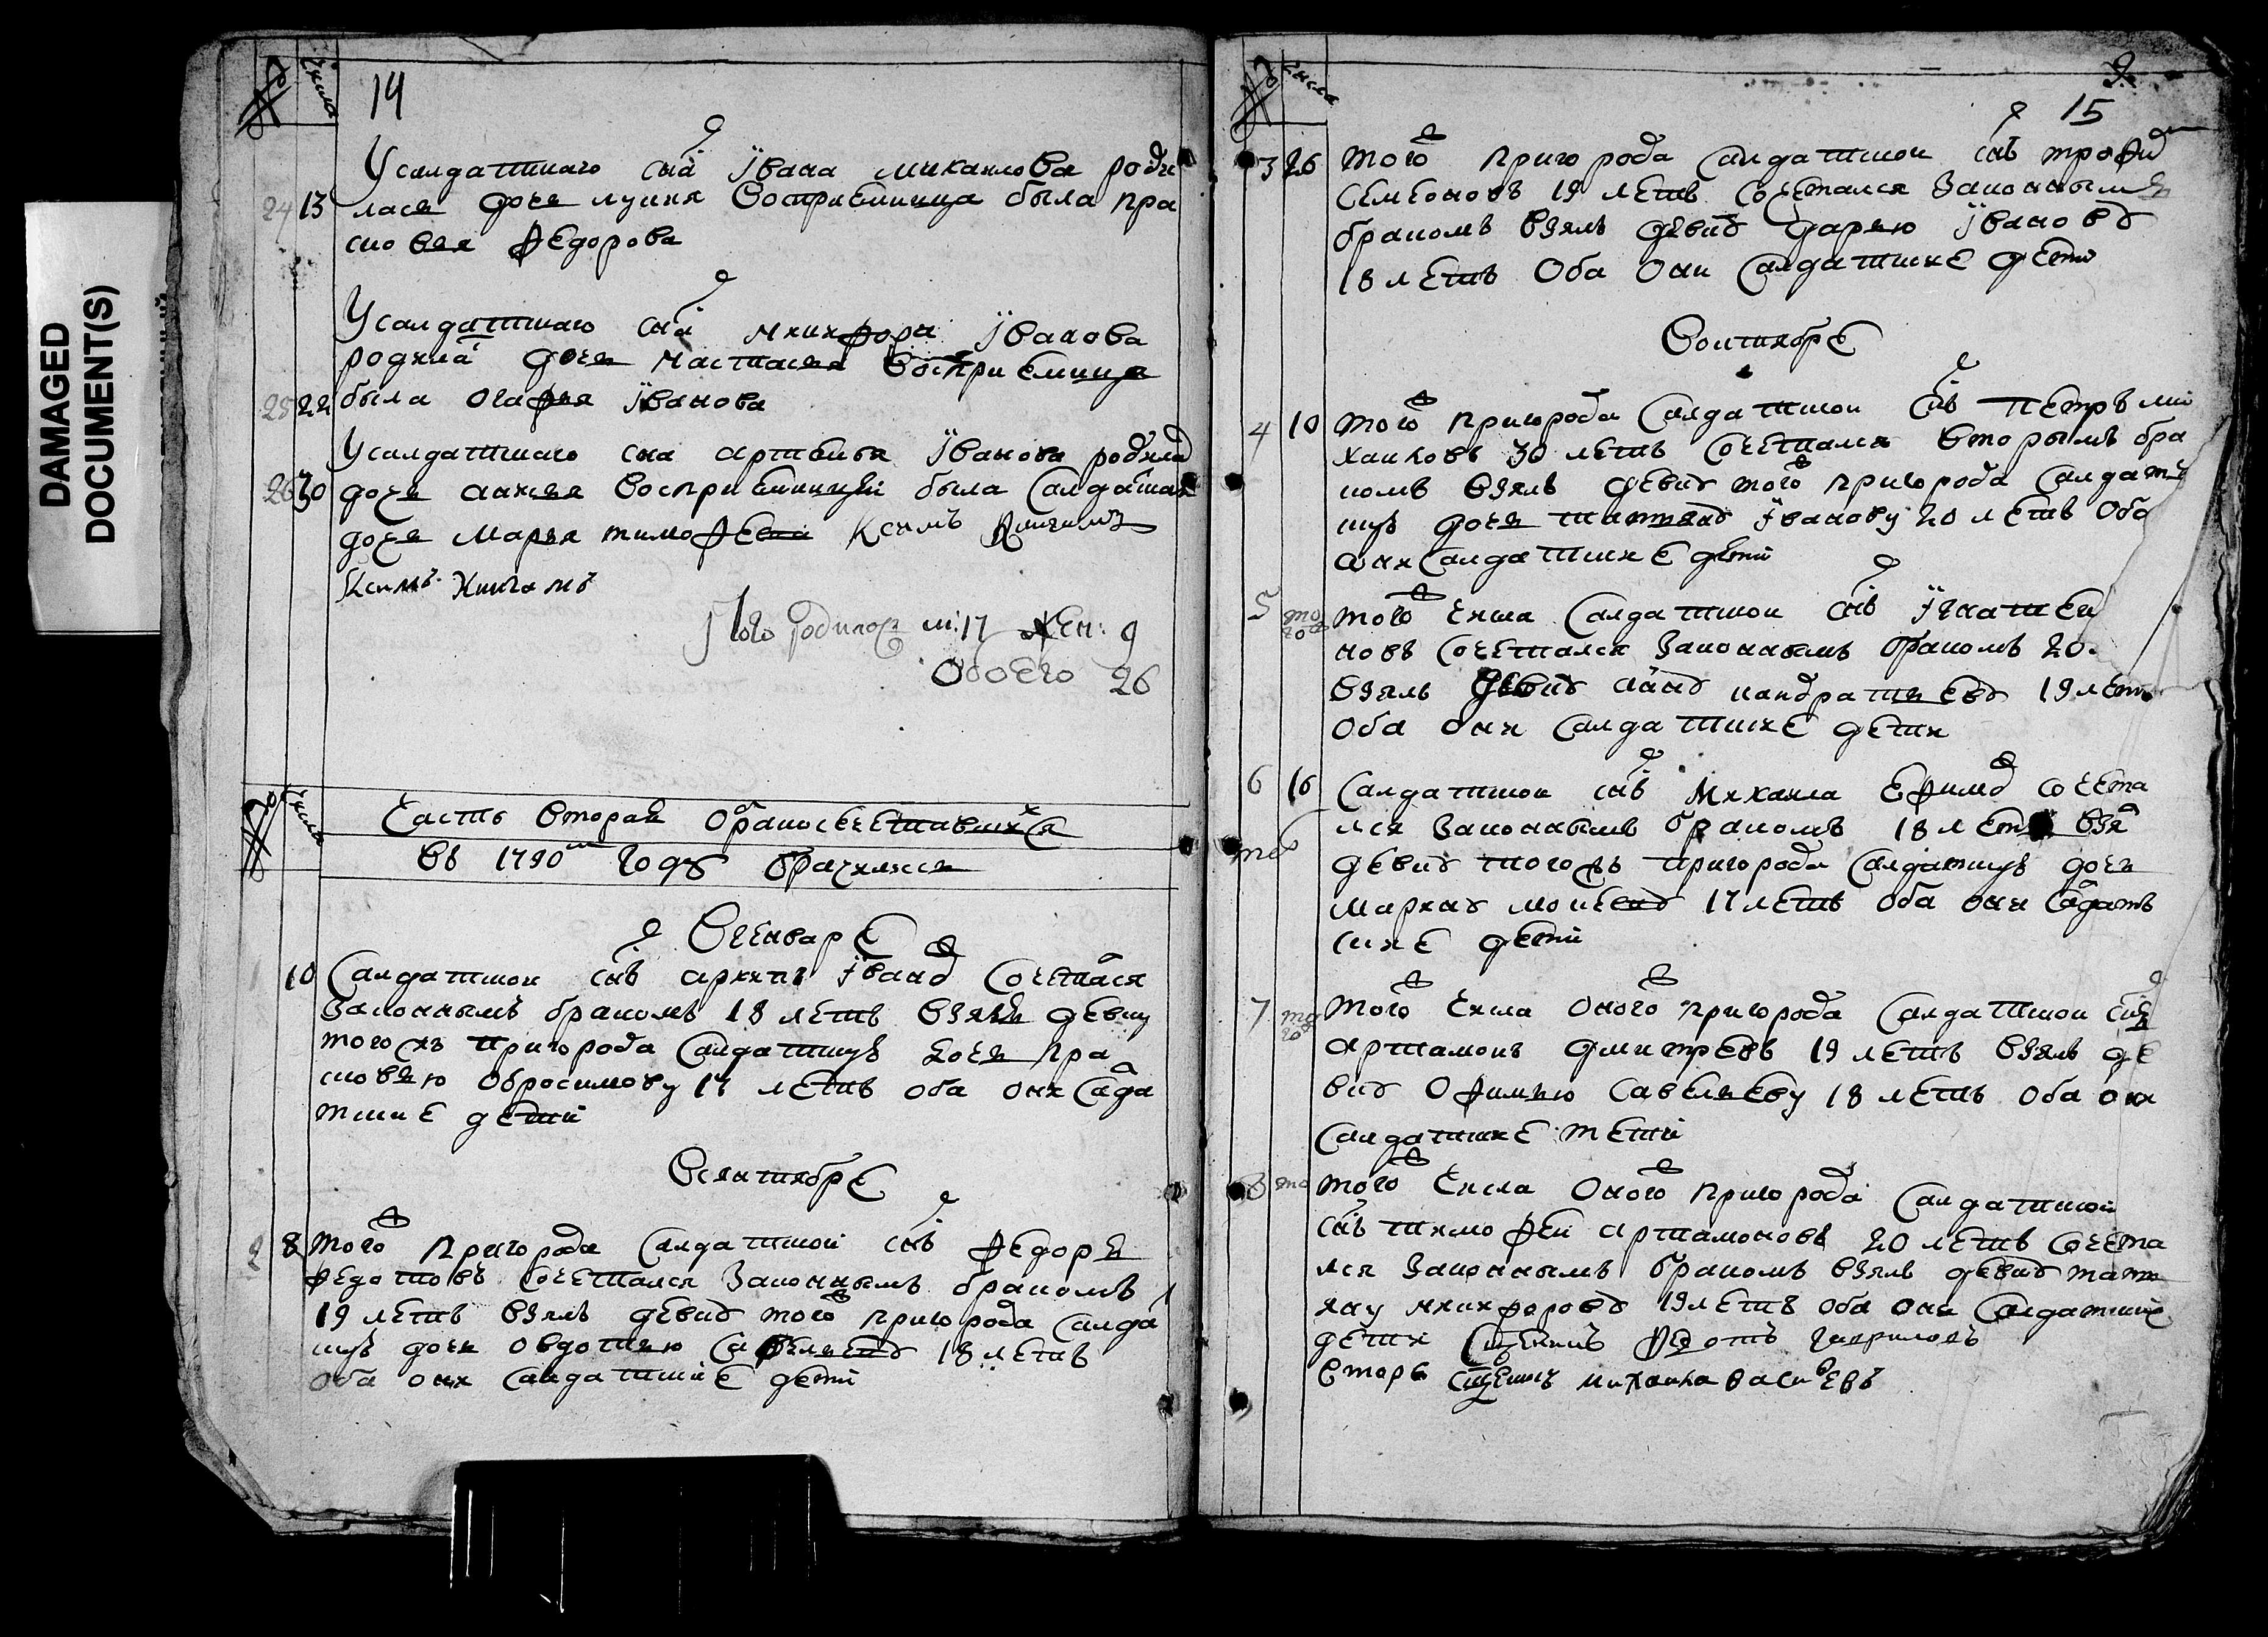 DAMAGED
DOCUMENT(S)
№ Число
14
У салдатцкаго сна Ивана михаилова роди
24 13 лася дочь лукия восприемница была пра
сковья федорова
У салдатцкаго сна никифора Иванова
родила дочь настасья восприемница
25 22 была огафья Иванова
У салдатцкаго сна артемья Иванова родила
26 30 дочь восприемницей была салдатцкая
дочь марья тимофеева
Ксимъ Книгамъ
Того родилось м: 17 жен: 9
Обоего 26
№ Число
Часть вторая о бракосочетавшихся
Въ 1790м году брачился
В генваре
1 10 Салдатцкои снъ архипъ Ивано сочетася
законнымъ бракомъ 18 летъ взялъ девку
тогожъ пригорода салдатцкую дочь пра
сковью обросимову 17 летъ оба они салда
тцкие дети
В сентябре
2 8 того пригорода салдатцкои снъ федоръ
федотовъ сочетался законнымъ бракомъ
19 летъ взялъ девку того пригорода салда
цкую дочь овдотью 18 летъ
оба они салдатцкие дети
№ числа
9
15
3 26 того пригорода салдатцкои снъ трофи
семеоновъ 19 летъ сочетался законнымъ
бракомъ взялъ девку дарью Иванову
18 летъ оба они салдатцкие дети
В октябре
4 10 того пригорода салдатцкои снъ петръ ми
хаиловъ 30 летъ сочетался вторымъ бра
комъ взялъ девку того пригорода салдат
цкую дочь татьяну Иванову 20 летъ оба
они салдатцкие дети
5 того числа салдатцкои снъ Игнатеи
новъ сочетался законнымъ бракомъ 20
взялъ девку анну кандратьеву 19 летъ
оба они салдатцкие дети
6 16 Салдатцкои снъ михаила ефимо сочета
лся законнымъ бракомъ 18 летъ взя
девку тогожъ пригорода салдатцкую дочь
марину 17 летъ оба они салдатъ
цкие дети
7 того числа оного пригорода салдатцкои снъ
артамонъ дмитревъ 19 летъ взялъ де
вку офимью савельеву 18 летъ оба они
салдатцкие дети
8 того числа оного пригорода салдатцкои
снъ тимофеи артамоновъ 20 летъ сочета
лся законнымъ бракомъ взялъ девку татья
ну никифорову 19 летъ оба они салдатцкие
дети Сщенникъ федотъ гавриловъ
Второ сщенникъ михаила васильевъ